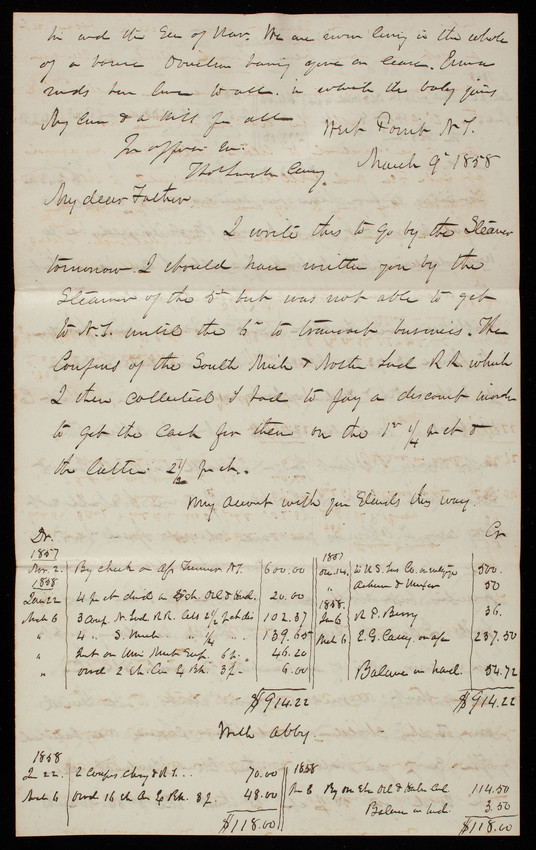 and the Sec of War. We are now living in the whole
of a house having gone on leave. Emma
sends her love to all. in which the baby joins
My love & a kiss for all
Yr affec son
Thos Lincoln Casey
West Point N.Y.
March 9th 1858
My dear Father
I write this to go by the Steamer
tomorrow. I should have written you by the
Steamer of the 5th but was not able to get
to N.Y. until the 6th to transact business. The
Coupons of the South Mich & North Ind R R which
I then collected I had to pay a discount inorder
to get the Cash for them on the 1st 1/4 pr ct &
the latter 2 1/2 pr ct.
My account with you Stands this way
Dr. Cr
1857
Nov. 2. By check on Ass Treasurer N.Y. 600.00
1858
Jan 22 4 pr ct divid on 20.00
Mch 6 3 Coup. N. Ind R.R. less 2 1/2 pr ct dis 102.37
" 4 " S. Mich " 1/4 " 139.65
" 46.20
" divd 2 sh. 3 pr 6.00
$914.22
1857
Dec 14. To U.S. Ins Co. 500.
" 50
1858.
Jan 6 R. P. Berry 36.
Mch 6 E. G. Casey on a/c 237.50
Balance in hand. 54.72
$914.22
With Abby
1858
Jn 22. 2 Coups. 70.00
Mch 6 divd 16 sh 3 pr 48.00
$118.00
1858
114.50
Balance in hand. 3.50
$118.00